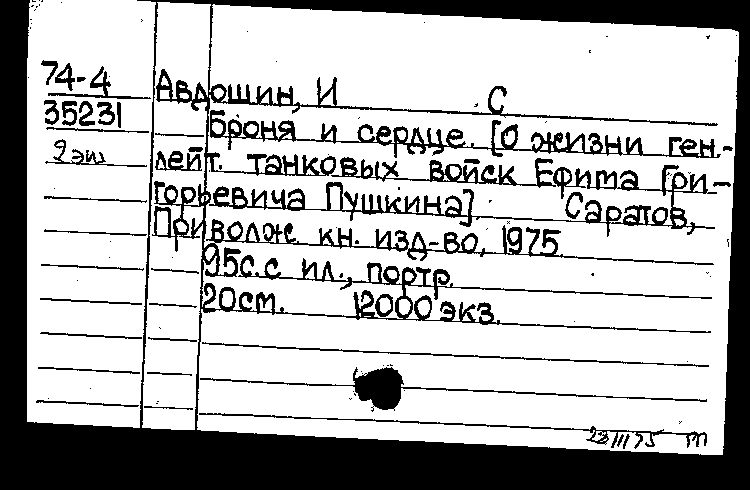 74-4
35231
2 экз
Авдошин, И С
Броня и сердце. [О жизни ген.-
лейт. танковых войск Ефима Гри-
горьевича Пушкина]. Саратов,
Приволж. кн. изд-во, 1975.
95с.с ил., портр.
20см. 12000 экз.
23/III 75